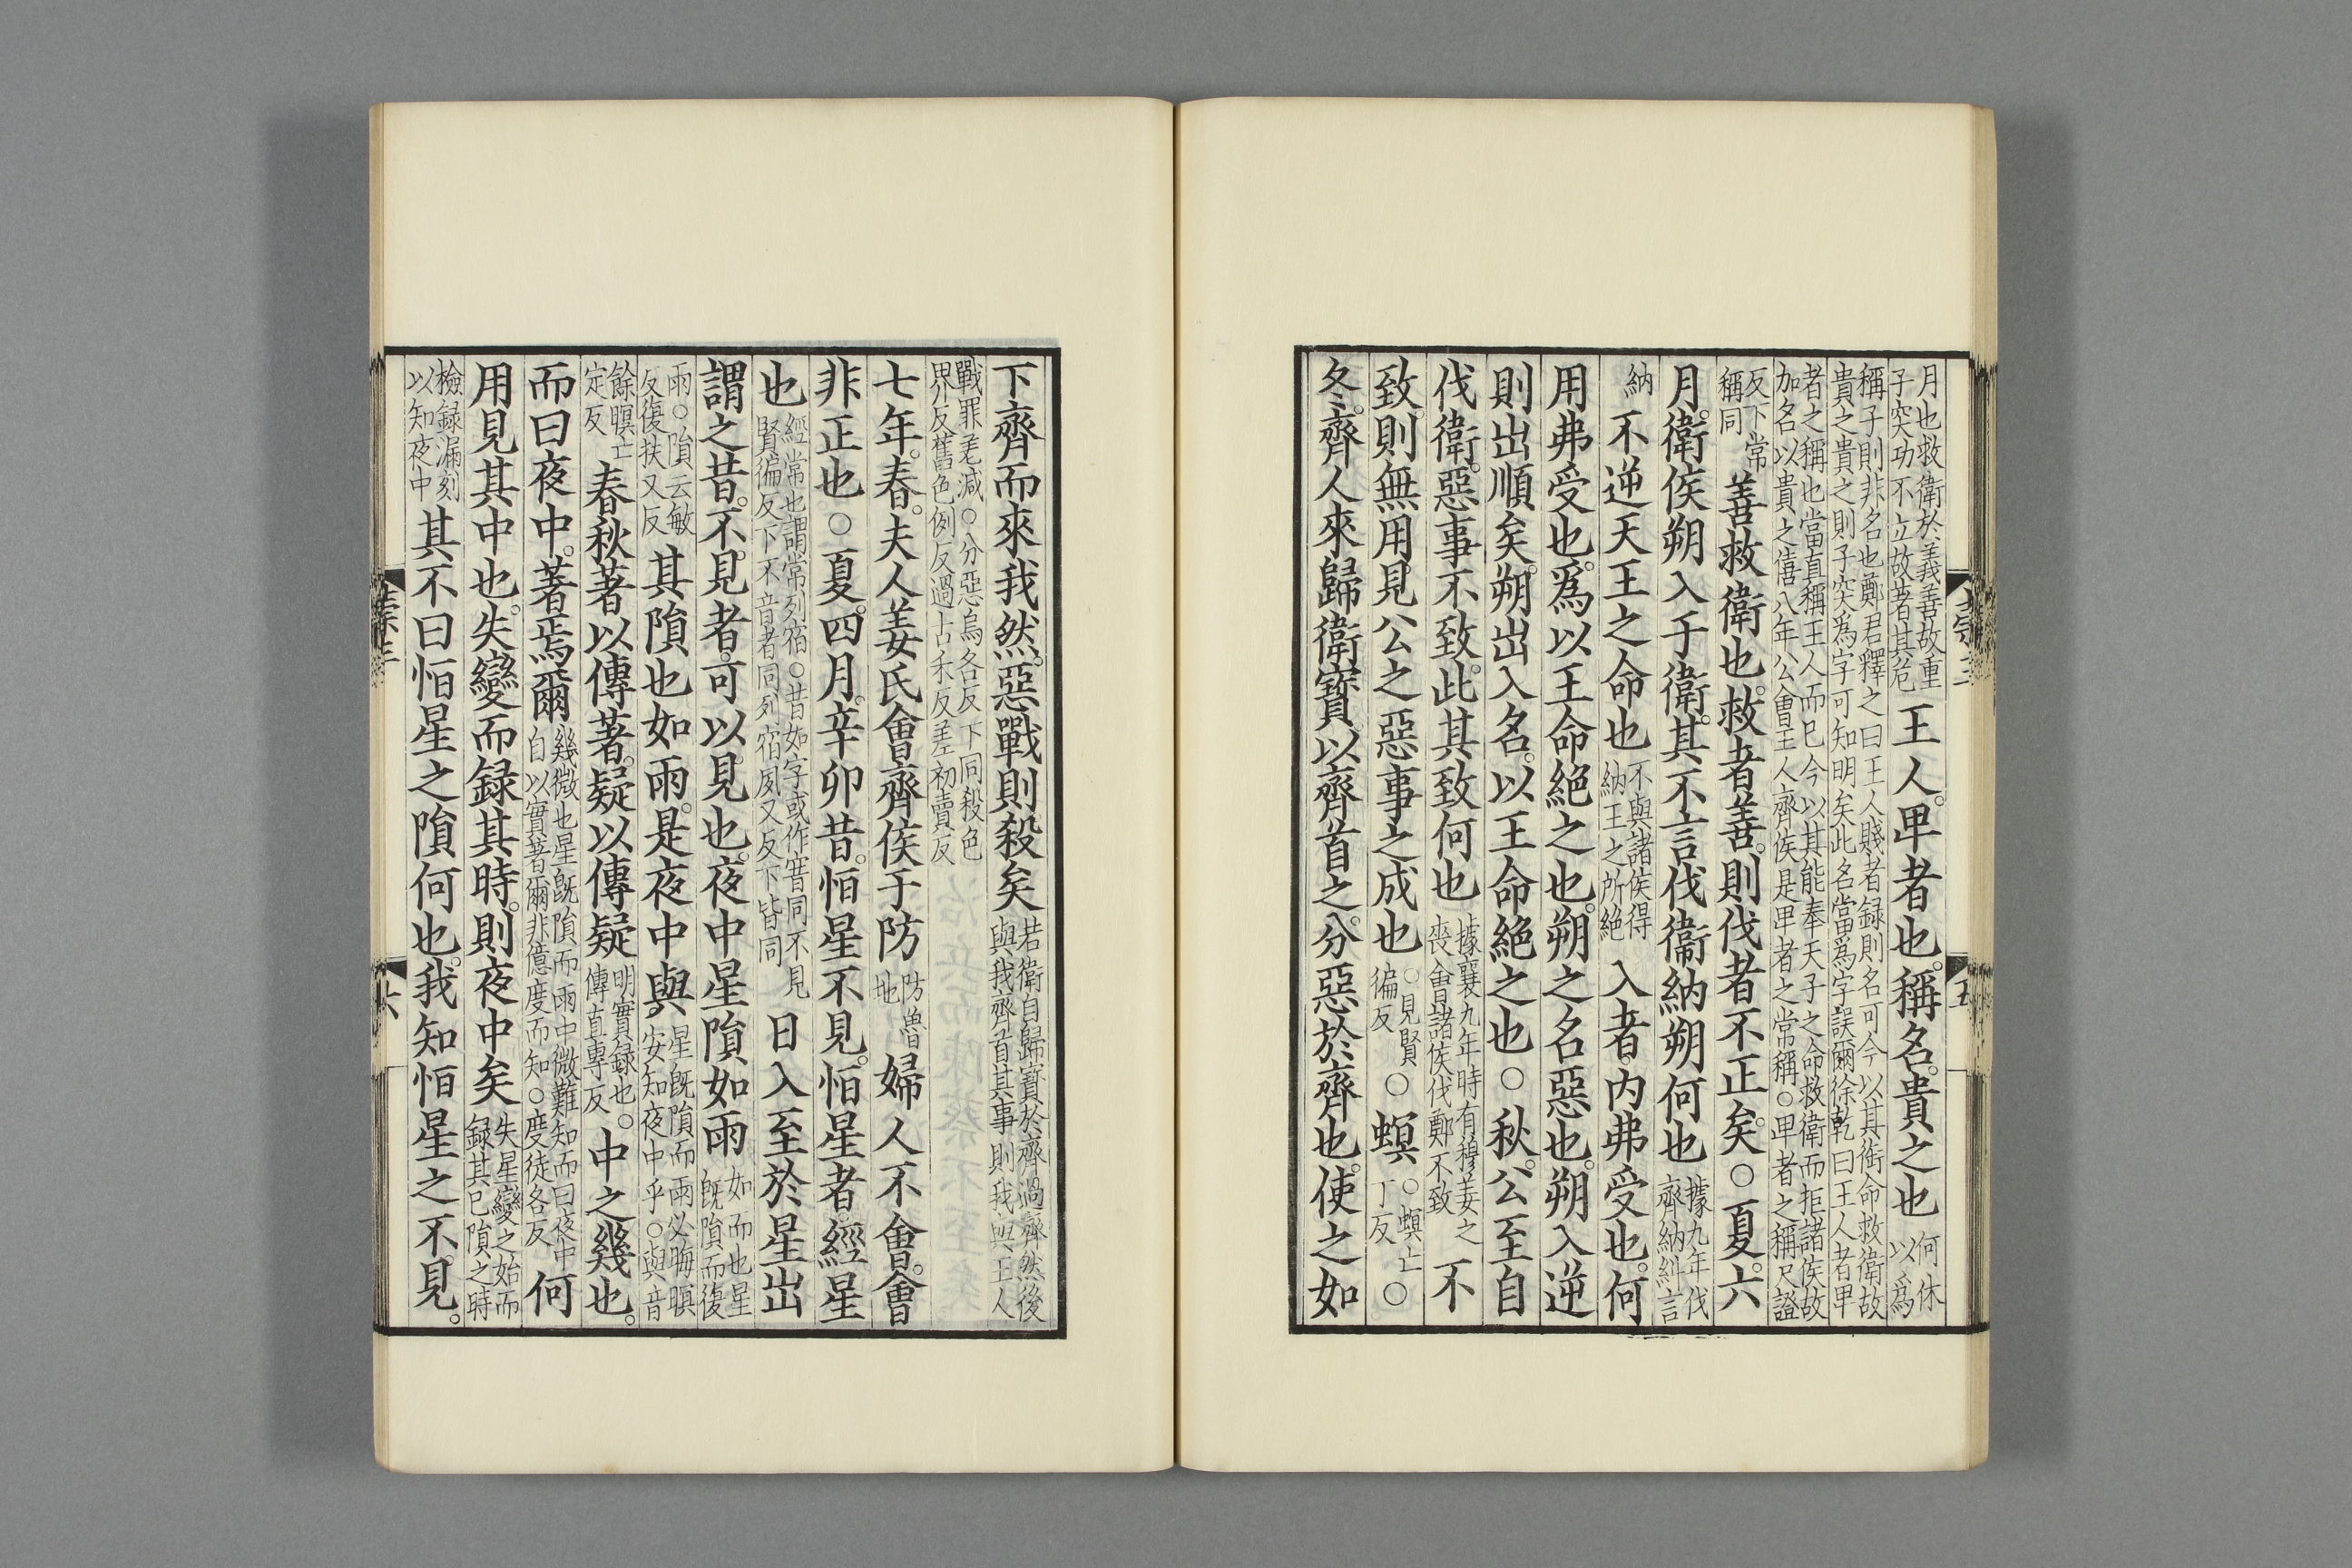 月也救衛於義善故重子突功不立故著其危王人卑者也稱名貴之也何休以爲
稱子則非名也鄭君釋之曰王人賤者録則名可今以其銜命救衛故貴之貴之則子突爲字可知明矣此名當爲字誤爾徐乾曰王人者卑
者之稱也當直稱王人而已今以其能奉天子之命救衛而拒諸侯故加名以貴之僖八年公會王人齊侯是卑者之常稱○卑者之稱尺證
反下常稱同善救衛也救者善則伐者不正矣○夏六
月衛侯朔入于衛其不言伐衞納朔何也據九年伐齊納糾言
納不逆天王之命也不與諸侯得納王之所絶入者内弗受也何
用弗受也爲以王命絶之也朔之名惡也朔入逆
則出順矣朔出入名以王命絶之也○秋公至自
伐衛惡事不致此其致何也據襄九年時有穆姜之喪會諸侯伐鄭不致不
致則無用見公之惡事之成也○見賢徧反○螟○螟亡丁反○
冬齊人來歸衛寶以齊首之分惡於齊也使之如
下齊而來我然惡戰則殺矣若衛自歸寶於齊過齊然後與我齊首其事則我與王人
戰罪差減○分惡烏各反下同殺色界反舊色例反過古禾反差初賣反
七年春夫人姜氏會齊侯于防防魯地婦人不會會
非正也○夏四月辛卯昔恒星不見恒星者經星
也經常也謂常列宿○昔如字或作昔同不見賢徧反下不音者同列宿夙又反下皆同日入至於星出
謂之昔不見者可以見也夜中星隕如雨如而也星既隕而復
雨○隕云敏反復扶又反其隕也如雨是夜中與星既隕而雨必晦暝安知夜中乎○與音
餘暝亡定反春秋著以傳著疑以傳疑明實録也○傳直專反中之幾也
而曰夜中著焉爾幾微也星既隕而雨中微難知而曰夜中自以實著爾非億度而知○度徒各反何
用見其中也失變而録其時則夜中矣失星變之始而録其已隕之時
檢録漏刻以知夜中其不曰恒星之隕何也我知恒星之不見
五
六